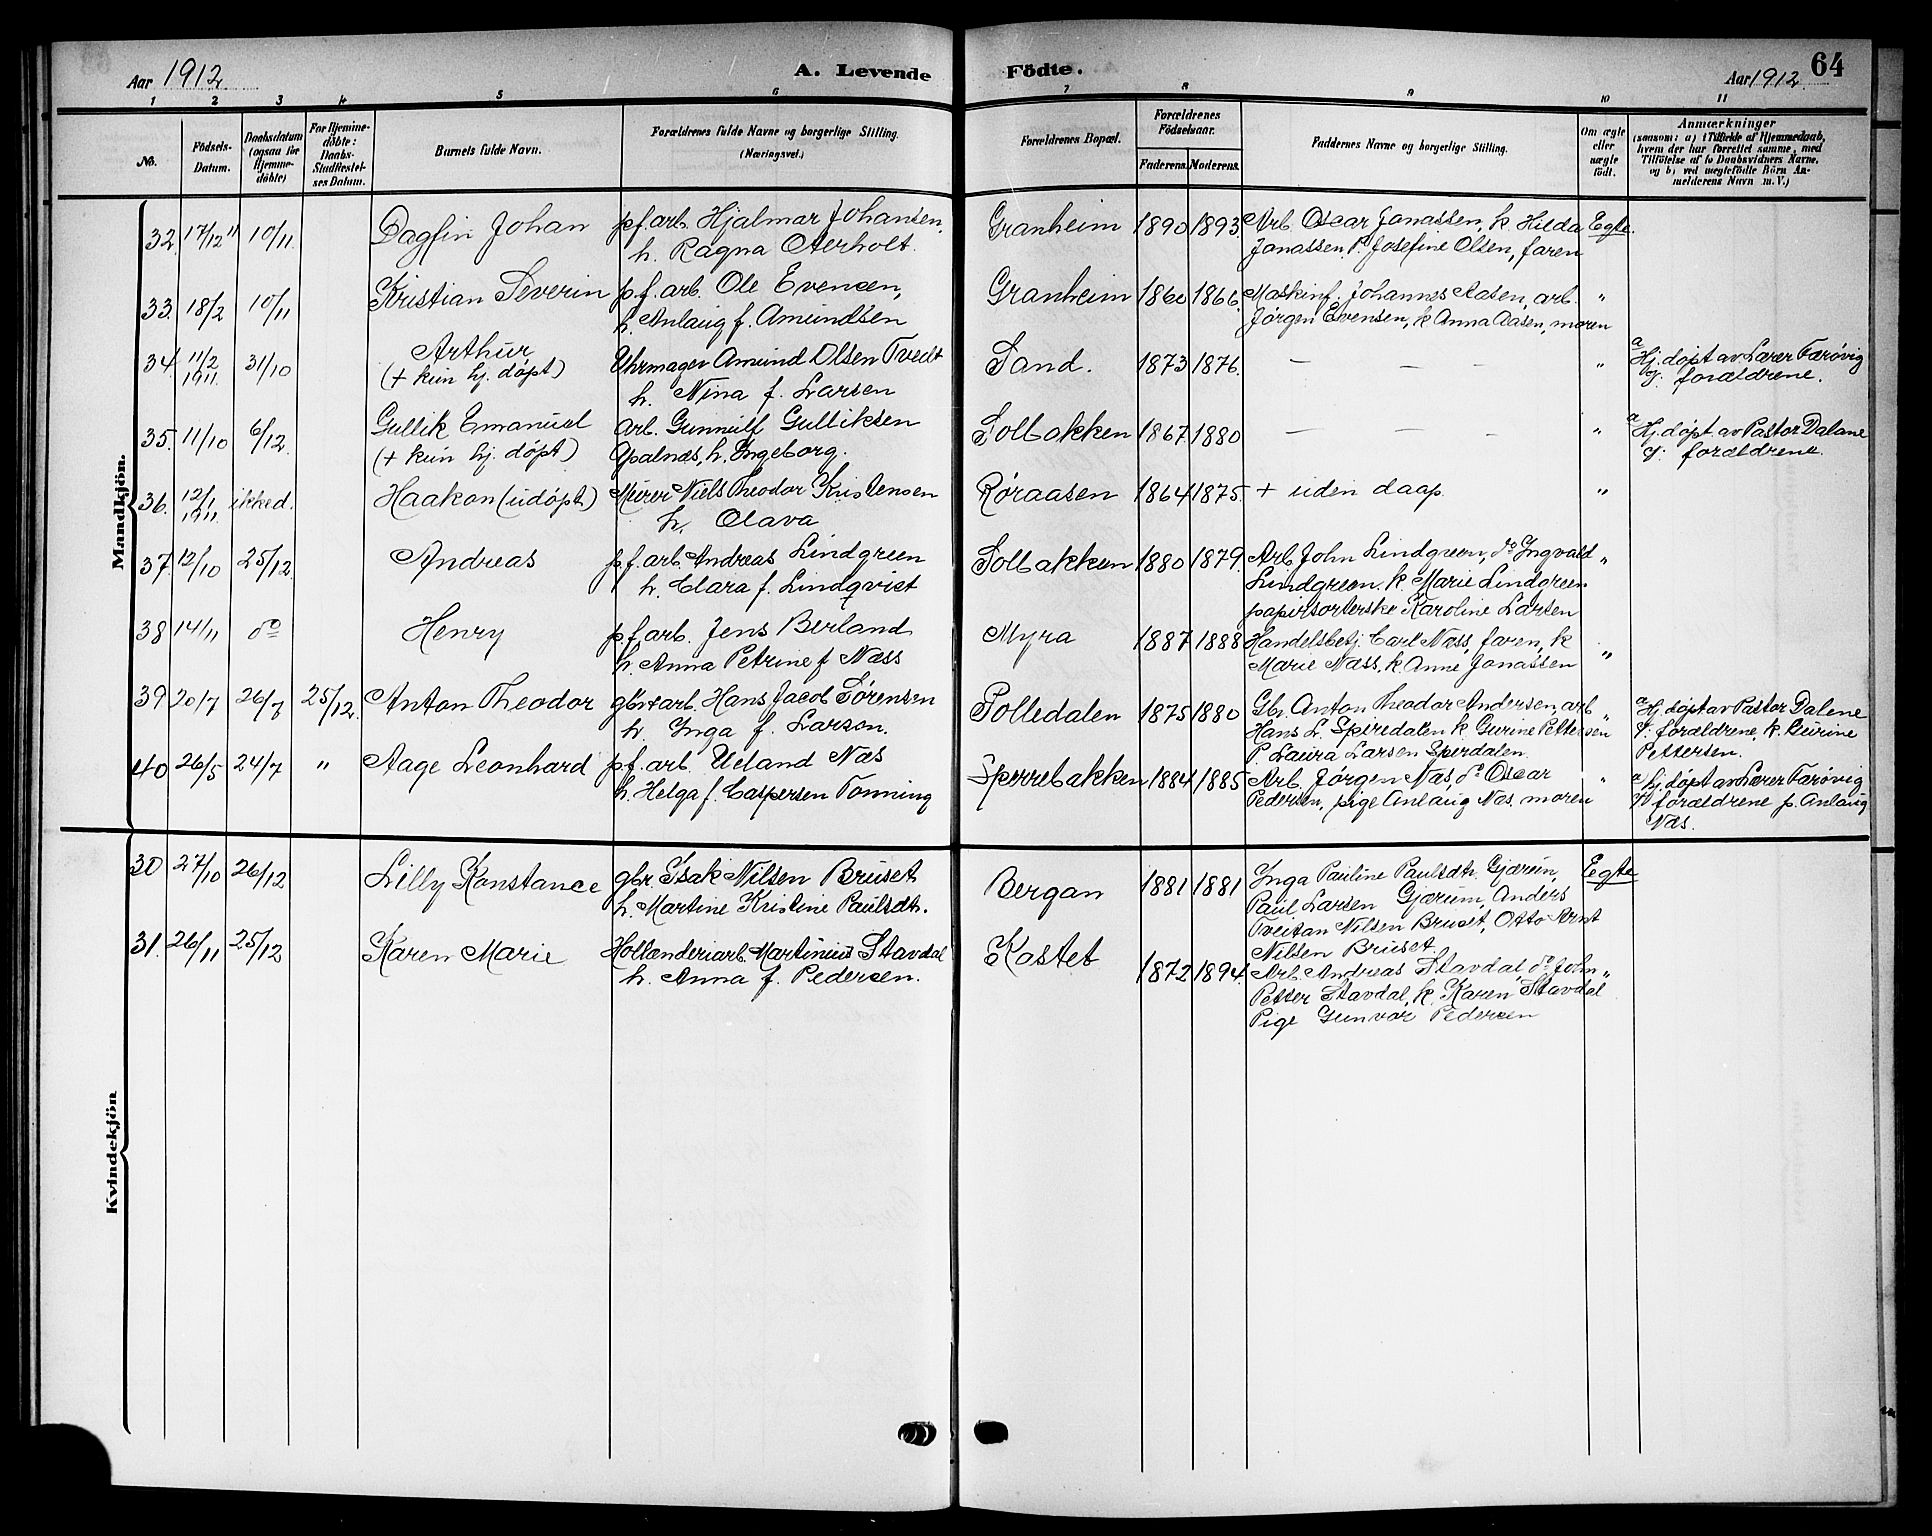 Aar 1912
A. Levende
1 2 3 4 5 6
No.
Födsels-
Datum.
Daabsdatum
(ogsaa for
Hjemme-
döbte)
For Hjemme-
döbte:
Daabs-
Stadfæstel-
ses Datum.
Barnets fulde Navn.
Forældrenes fulde Navne og borgerlige Stilling.
(Næringsvei.)
Mandkjön.
32. 17/12 11 10/11. Dagfin Johan p.f.arb. Hjalmar Johansen,
h. Ragna Aterholt.
33. 18/2 10/11 Kristian Severin p.f. arb. Ole Evensen,
h. Anlaug f. Amundsen
34. 11/2 1911. 31/10 Arthur Uhrmager Amund Olsen Tvedt
(+ kun hj. døpt) h. Nina f. Larsen
35. 11/10 6/12. Gullik Emanuel Arb. Gunnulf Gulliksen
(+ kun hj. døpt) Apalnæs, h. Ingeborg.
36. 12/1 1911. ikke d. Haakon (udøpt) Murer Niels Theodor Kristensen
h. Olava
37. 12/10 25/12. Andreas p.f. arb. Andreas Lindgreen
h. Clara f. Lindqvist
38 14/11 do Henry p.f. arb. Jens Berland
h. Anna Petrine f. Næss
39 20/7 26/7 25/12. Anton Theodor gbr + arb. Hans Jacob Sørensen
h. Inga f. Larson.
40 26/5 24/7 " Aage Leonhard p.f. arb. Ueland Næs
h. Helga f. Caspersen Tonning
Kvindekjön
30 27/10 26/12 Lilly Konstance gbr. Isak Nilsen Bruset
h. Martine Kristine Paulsdtr.
31. 26/11 25/12 Karen Marie Hollænderiarb. Martinius Stavdal
h. Anna f. Pedersen.
Födte.
Aar 1912. 64
7 8 9 10 11
Forældrenes Bopæl.
Forældrenes
Födselsaar.
Faderens. Moderens.
Faddernes Navne og borgerlige Stilling.
Om ægte
eller
uægte
födt.
Anmærkninger
(saasom: a) i Tilfælde af Hjemmedaab,
hvem der har forrettet samme, med
Tilföielse af to Daabsvidners Navne,
og b) ved uægtefödte Börn An-
melderens Navn m. V.)
Granheim 1890 1893. Arb. Oscar Jonassen, k. Hilda Egte.
Jonassen. P. Josefine Olsen, faren
Granheim 1860 1866. Maskinf. Johannes Aasen, arb. "
Jørgen Evensen, k. Anna Aasen, moren
Sand. 1873 1876. — — — " a Hj. døpt av Lærer Færøvig
g: forældrene.
Solbakken 1867 1880 — — — " a Hj. døpt av Pastor Dalane
g: forældrene.
Røraasen 1864 1875. + uden daap. "
Solbakken 1880 1879. Arb. John Lindgreen, do Ingvald "
Lindgreen. k. Marie Lindgreen
papirsorterske Karoline Larsen
Myra 1887 1888 Handelsbetj. Carl Næss, faren, k.
Marie Næss, k. Anne Jonassen "
Polledalen 1875 1880 Gbr. Anton Theodor Andersen, arb a Hj. døpt av Pastor Dalene
Hans L. Speredalen k. Gurine Pettersen " f: forældrene, k. Gurine
P. Laura Larsen Sperdalen. Pettersen.
Sperrebakken 1884 1885 Arb. Jørgen Næs, do Oscar " a hj. døpt av Lærer Færøvig
Pedersen, pige Anlaug Næs, moren f: forældrene p. Anlaug
Næs.
Bergan 1881 1881 Inga Pauline Paulsdtr. Gjærum, Egte
Paul Larsen Gjærum, Anders
Tveitan Nilsen Bruset, Otto Arnt
Nilsen Bruset.
Kastet 1872 1894. Arb. Andreas Stavdal, do John "
Petter Stavdal, k. Karen Stavdal
Pige Gunvor Pedersen